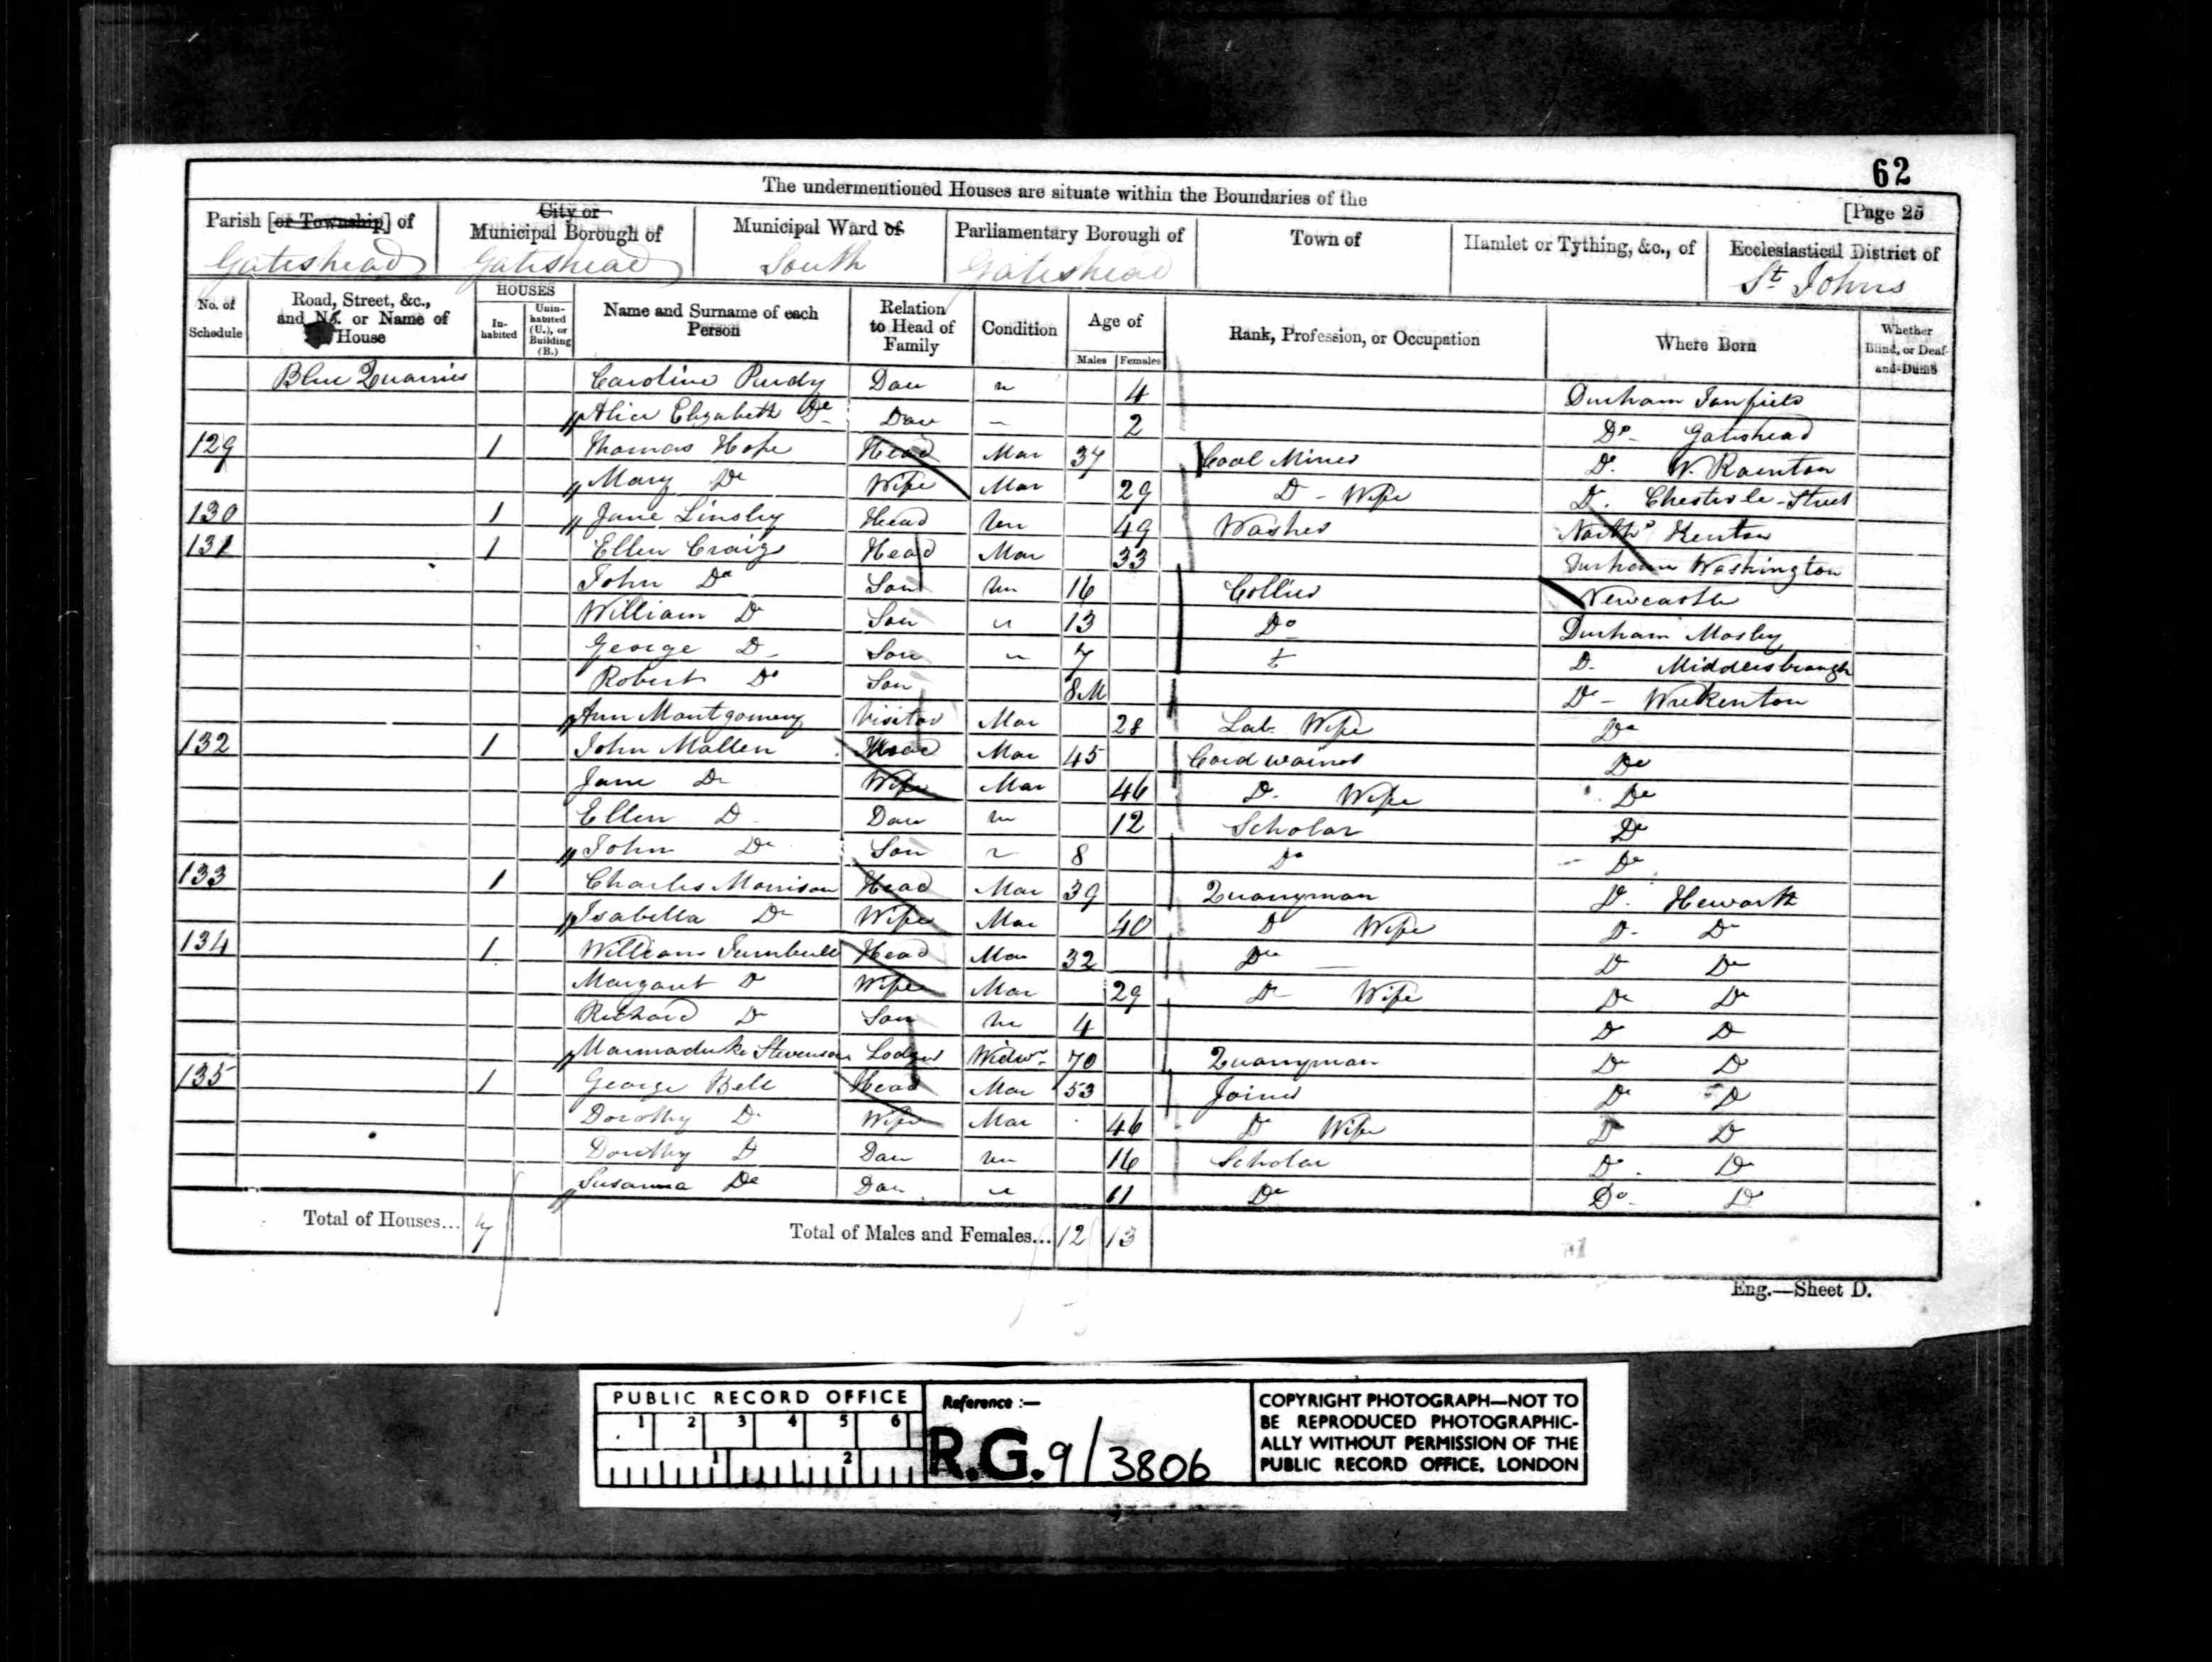 62
The undermentioned Houses are situate within the Boundaries of the
[Page 25
Parish [or Township] of Gateshead
City or Municipal Borough of Gateshead
Municipal Ward of South
Parliamentary Borough of Gateshead
Town of
Hamlet or Tything, &c., of
Ecclesiastical District of St Johns
No. of Schedule
Road, Street, &c., and No. or Name of House
HOUSES
Inhabited
Uninhabited (U.), or Building (B.)
Name and Surname of each Person
Relation to Head of Family
Condition
Age of
Males Females
Rank, Profession, or Occupation
Where Born
Whether Blind, or Deaf-and-Dumb
Blue Quarries Caroline Purdy Dau Un 4 Durham Tanfield
Alice Elizabeth Do Dau 2 Do Gateshead
129 1 Thomas Hope Head Mar 37 Coal Miner Do W. Rainton
Mary Do Wife Mar 29 Do Wife Do Chester-le-Street
130 1 Jane Linsley Head Un 49 Washer North Kenton
131 1 Ellen Craig Head Mar 33 Durham Washington
John Do Son Un 16 Collier Newcastle
William Do Son 13 Do Durham Mosley
George Do Son 7 Do Middlesbrough
Robert Do Son 8M Do Wrekenton
Ann Montgomery Visitor Mar 28 Lab. Wife Do
132 1 John Mallen Head Mar 45 Cordwainer Do
Jane Do Wife Mar 46 Do Wife Do
Ellen Do Dau Un 12 Scholar Do
John Do Son 8 Do Do
133 1 Charles Morrison Head Mar 39 Quarryman Do Heworth
Isabella Do Wife Mar 40 Do Wife Do Do
134 1 William Turnbull Head Mar 32 Do Do Do
Margaret Do Wife Mar 29 Do Wife Do Do
Richard Do Son Un 4 Do Do
Marmaduke Stevenson Lodger Widwr 70 Quarryman Do Do
135 1 George Bell Head Mar 53 Joiner Do Do
Dorothy Do Wife Mar 46 Do Wife Do Do
Dorothy Do Dau Un 16 Scholar Do Do
Susanna Do Dau 11 Do Do Do
Total of Houses... 7 Total of Males and Females... 12 13
Eng.—Sheet D.
PUBLIC RECORD OFFICE
1 2 3 4 5 6
1 2
Reference :—
R.G. 9/3806
COPYRIGHT PHOTOGRAPH—NOT TO
BE REPRODUCED PHOTOGRAPHIC-
ALLY WITHOUT PERMISSION OF THE
PUBLIC RECORD OFFICE, LONDON